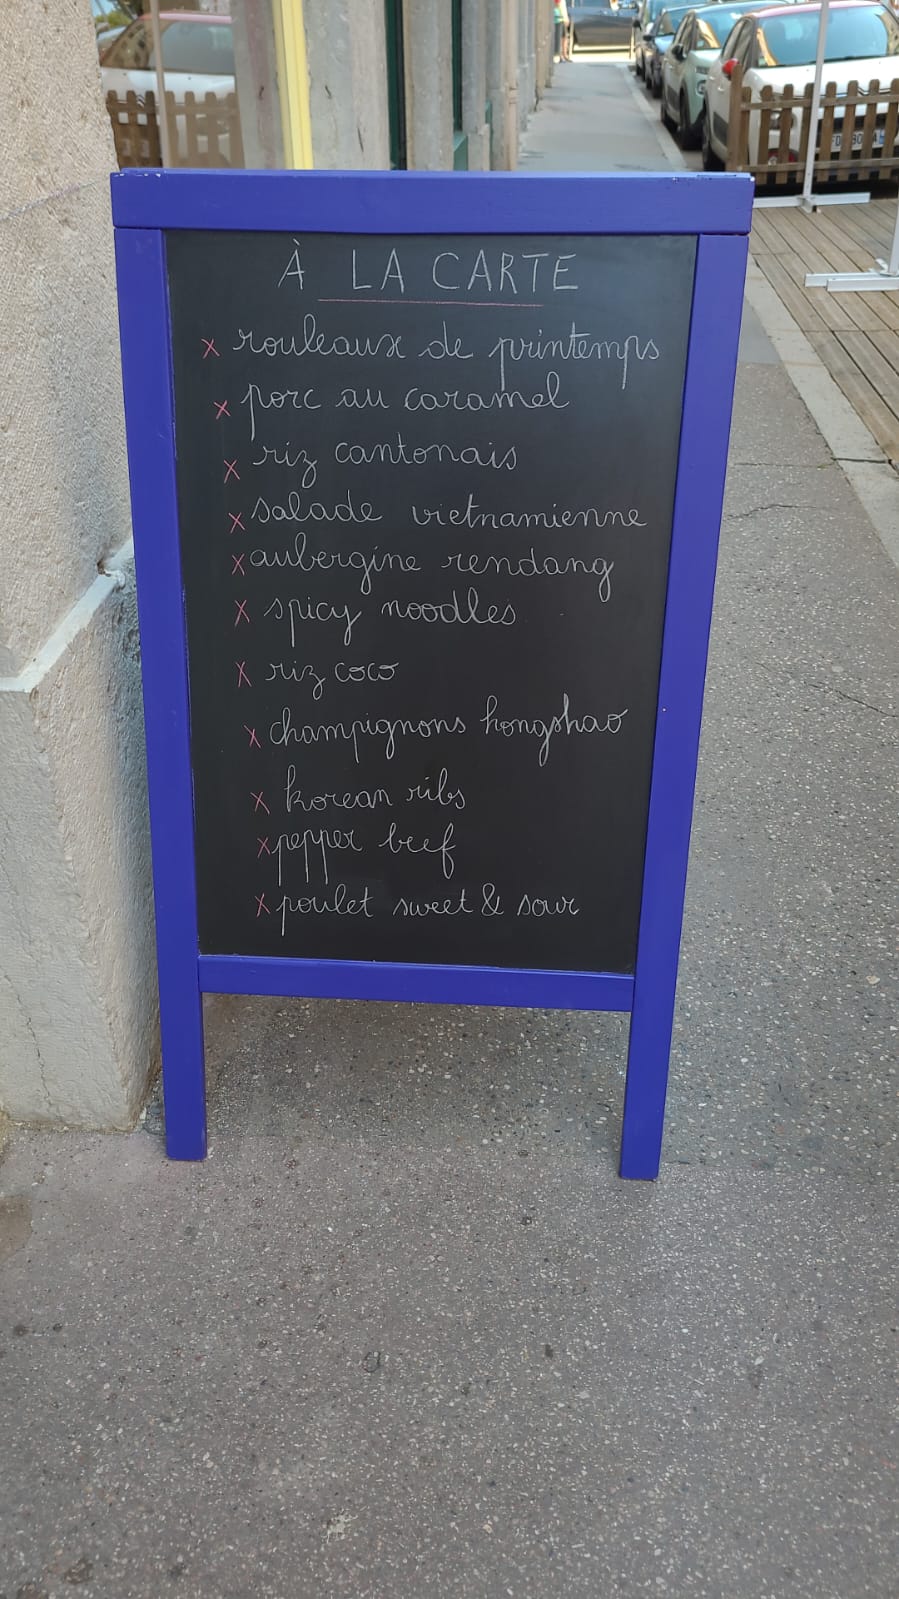 À LA CARTE
x rouleaux de printemps
x porc au caramel
x riz cantonais
x salade vietnamienne
x aubergine rendang
x spicy noodles
x riz coco
x champignons hongshao
x korean ribs
x pepper beef
x poulet sweet & sour